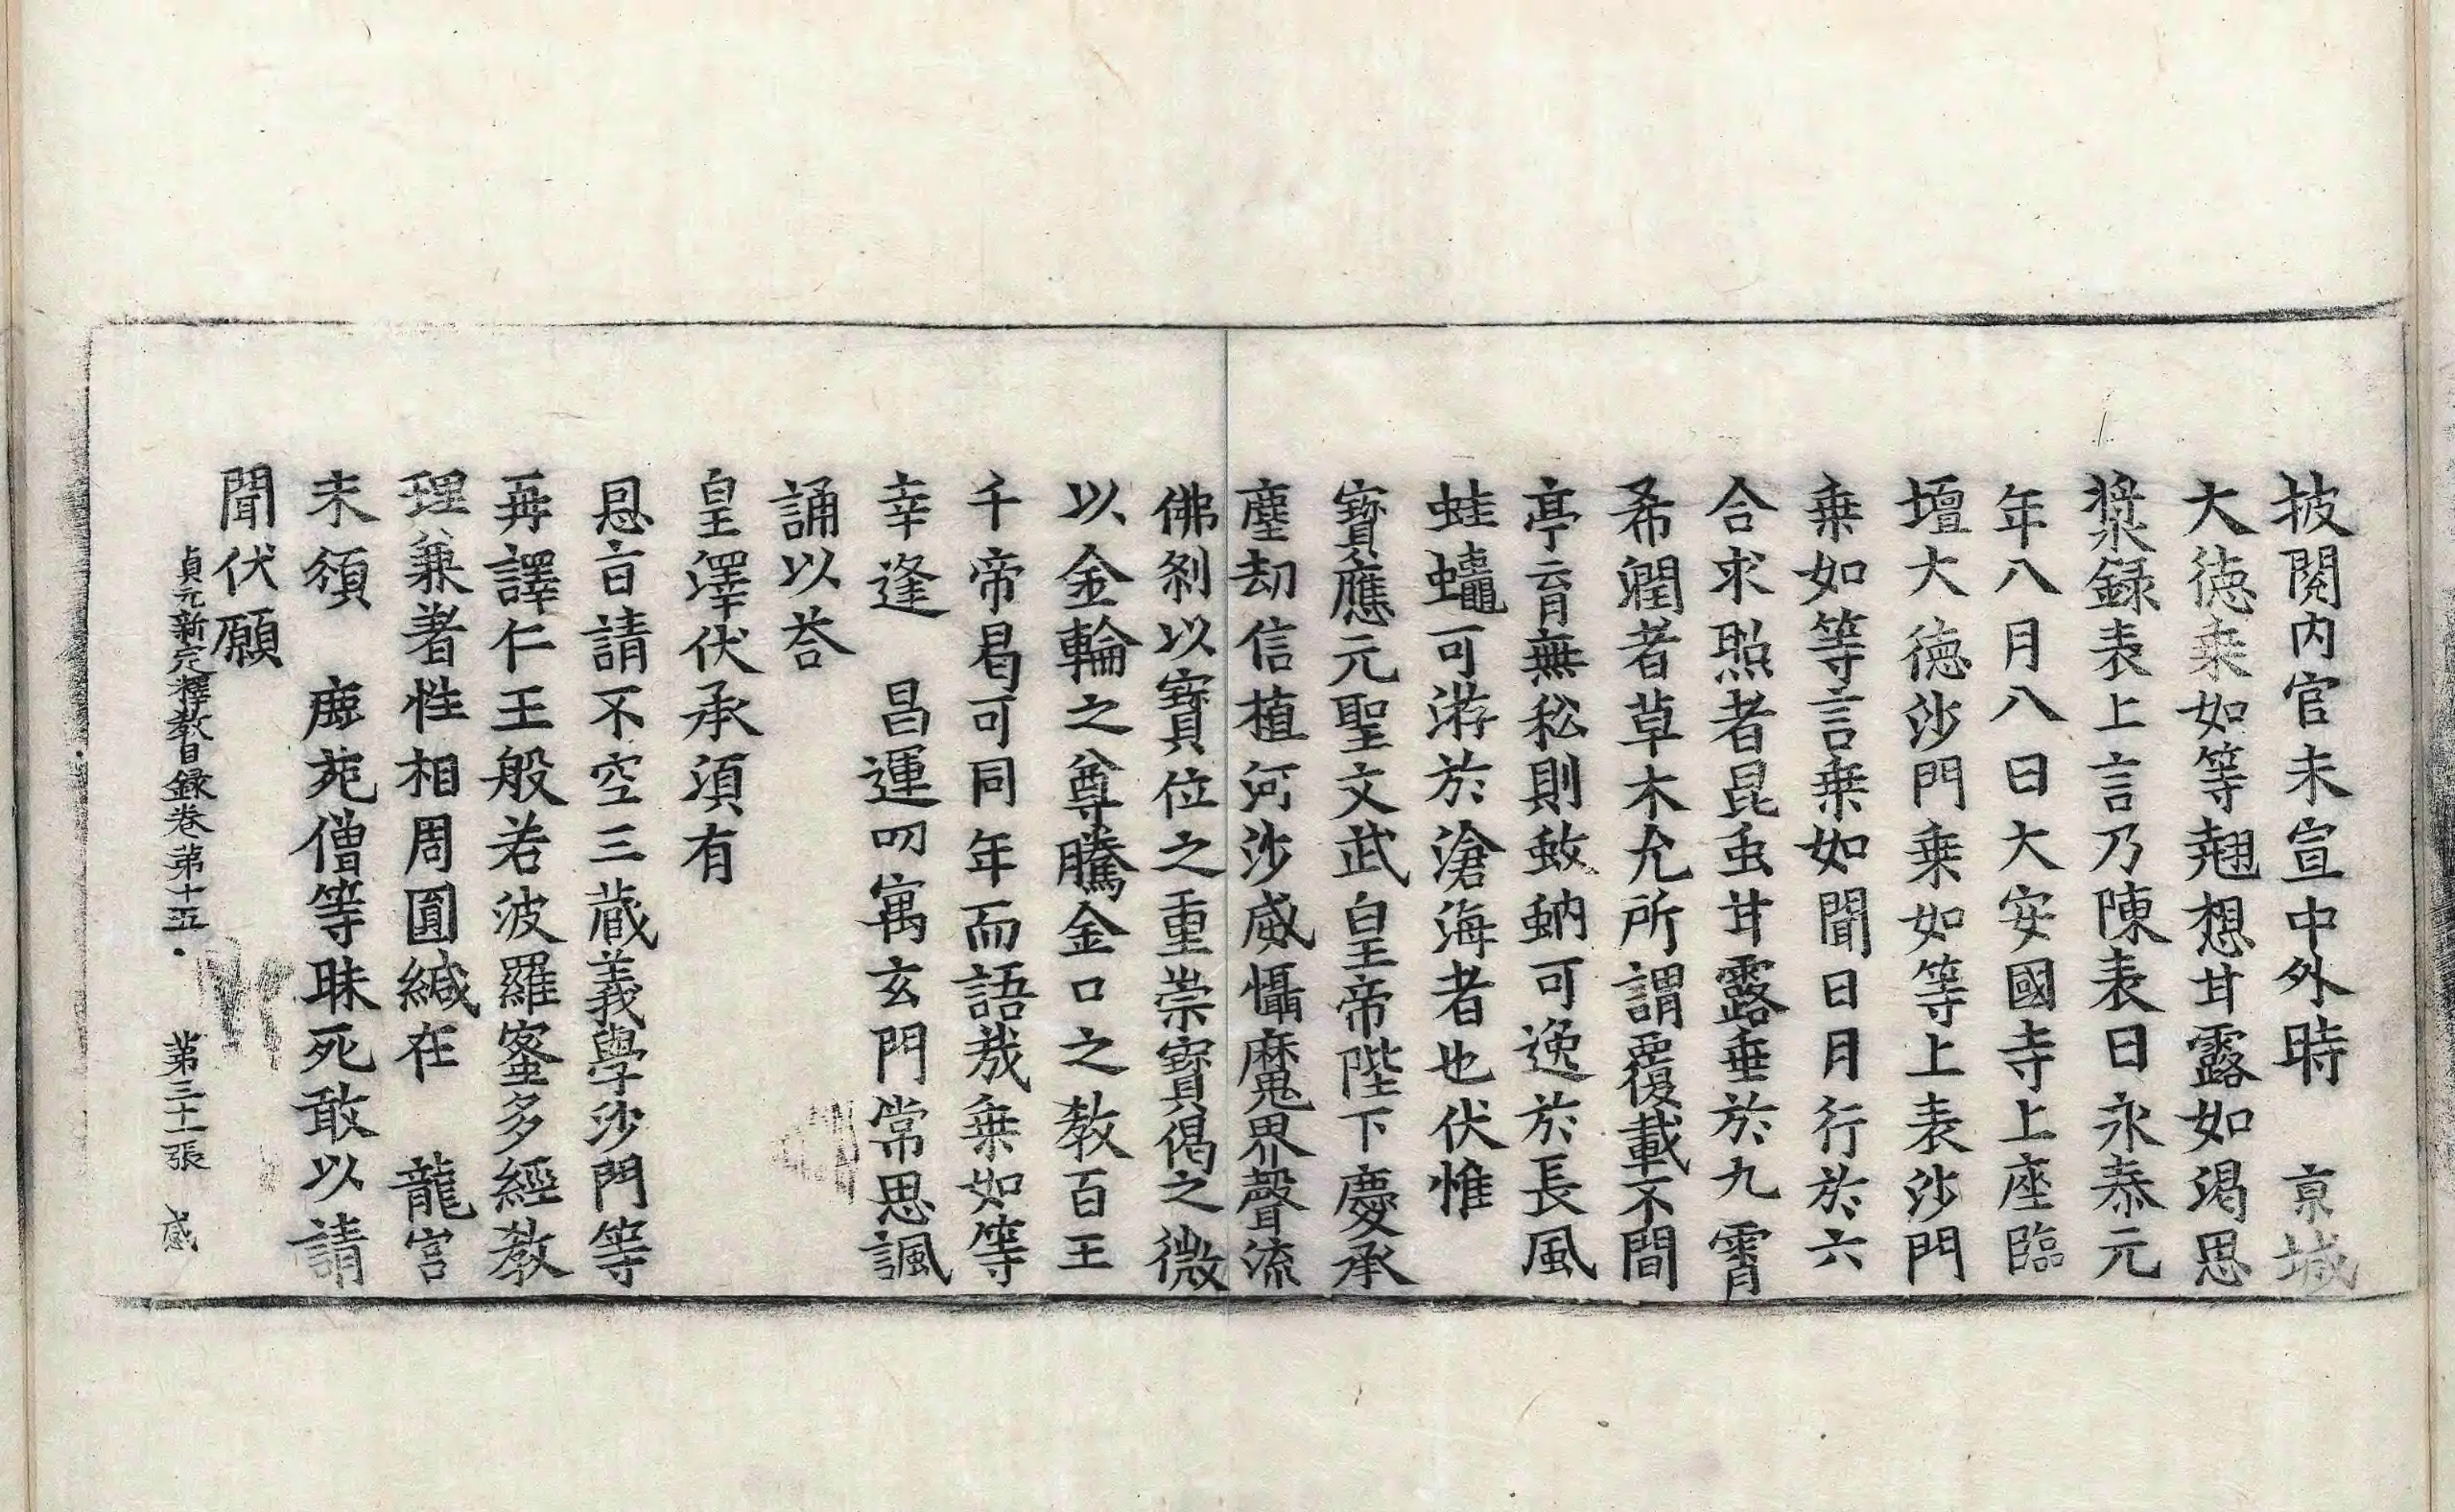 披閱内官未宣中外時　京城
大德乘如等翹想甘露如渴思
漿録表上言乃陳表曰永泰元
年八月八日大安國寺上座臨
壇大德沙門乗如等上表沙門
乗如等言乗如聞日月行於六
合求照者昆虫甘露垂於九霄
希潤者草木允所謂覆載不間
亭育無私則蚊蚋可逸於長風
蛙蠅可游於滄海者也伏惟
寶應元聖文武皇帝陛下慶承
塵劫信植河沙威懾魔界聲流
佛剎以寶位之重崇寶偈之微
以金輪之尊騰金口之教百王
千帝曷可同年而語哉乗如等
幸逢　昌運叨寓玄門常思諷
誦以荅
皇澤伏承湏有
恩旨請不空三蔵義學沙門等
再譯仁王般若波羅蜜多經教
理兼著性相周圓緘在　龍宫
未頒　鹿苑僧等昧死敢以請
聞伏願
貞元新定釋教目録卷第十五　第三十一張　感